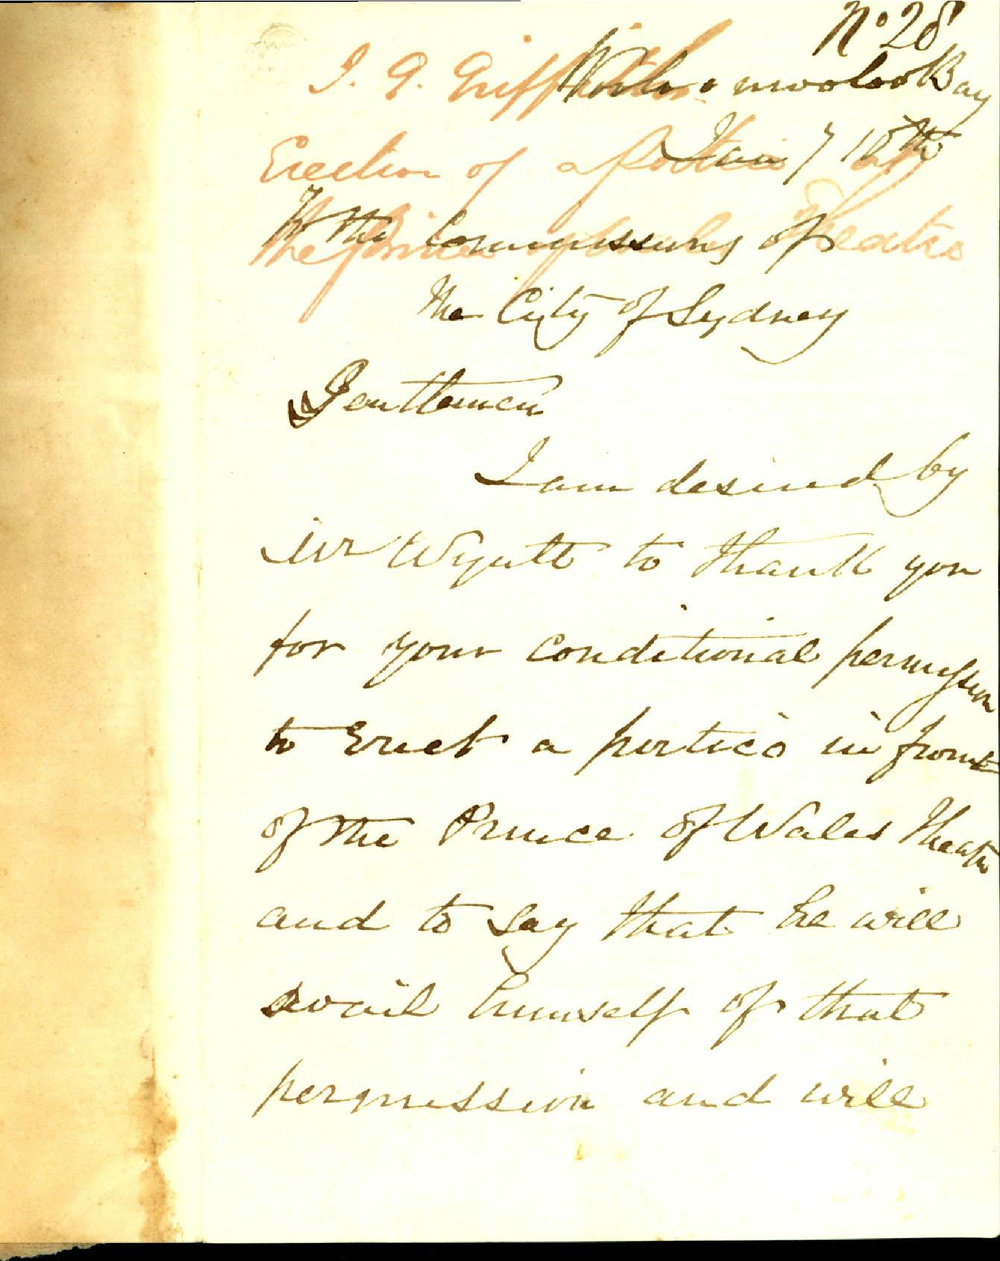 No 28
J. G. Griffiths
Woolloomooloo Bay
Erection of a Portico at
Jan 7 18th
the Prince of Wales Theatre
To the Commissioners of
the City of Sydney
Gentlemen
I am desired by
Mr Wyatt to thank you
for your conditional permission
to Erect a portico in front
of the Prince of Wales Theatre
and to say that he will
avail himself of that
permission and will